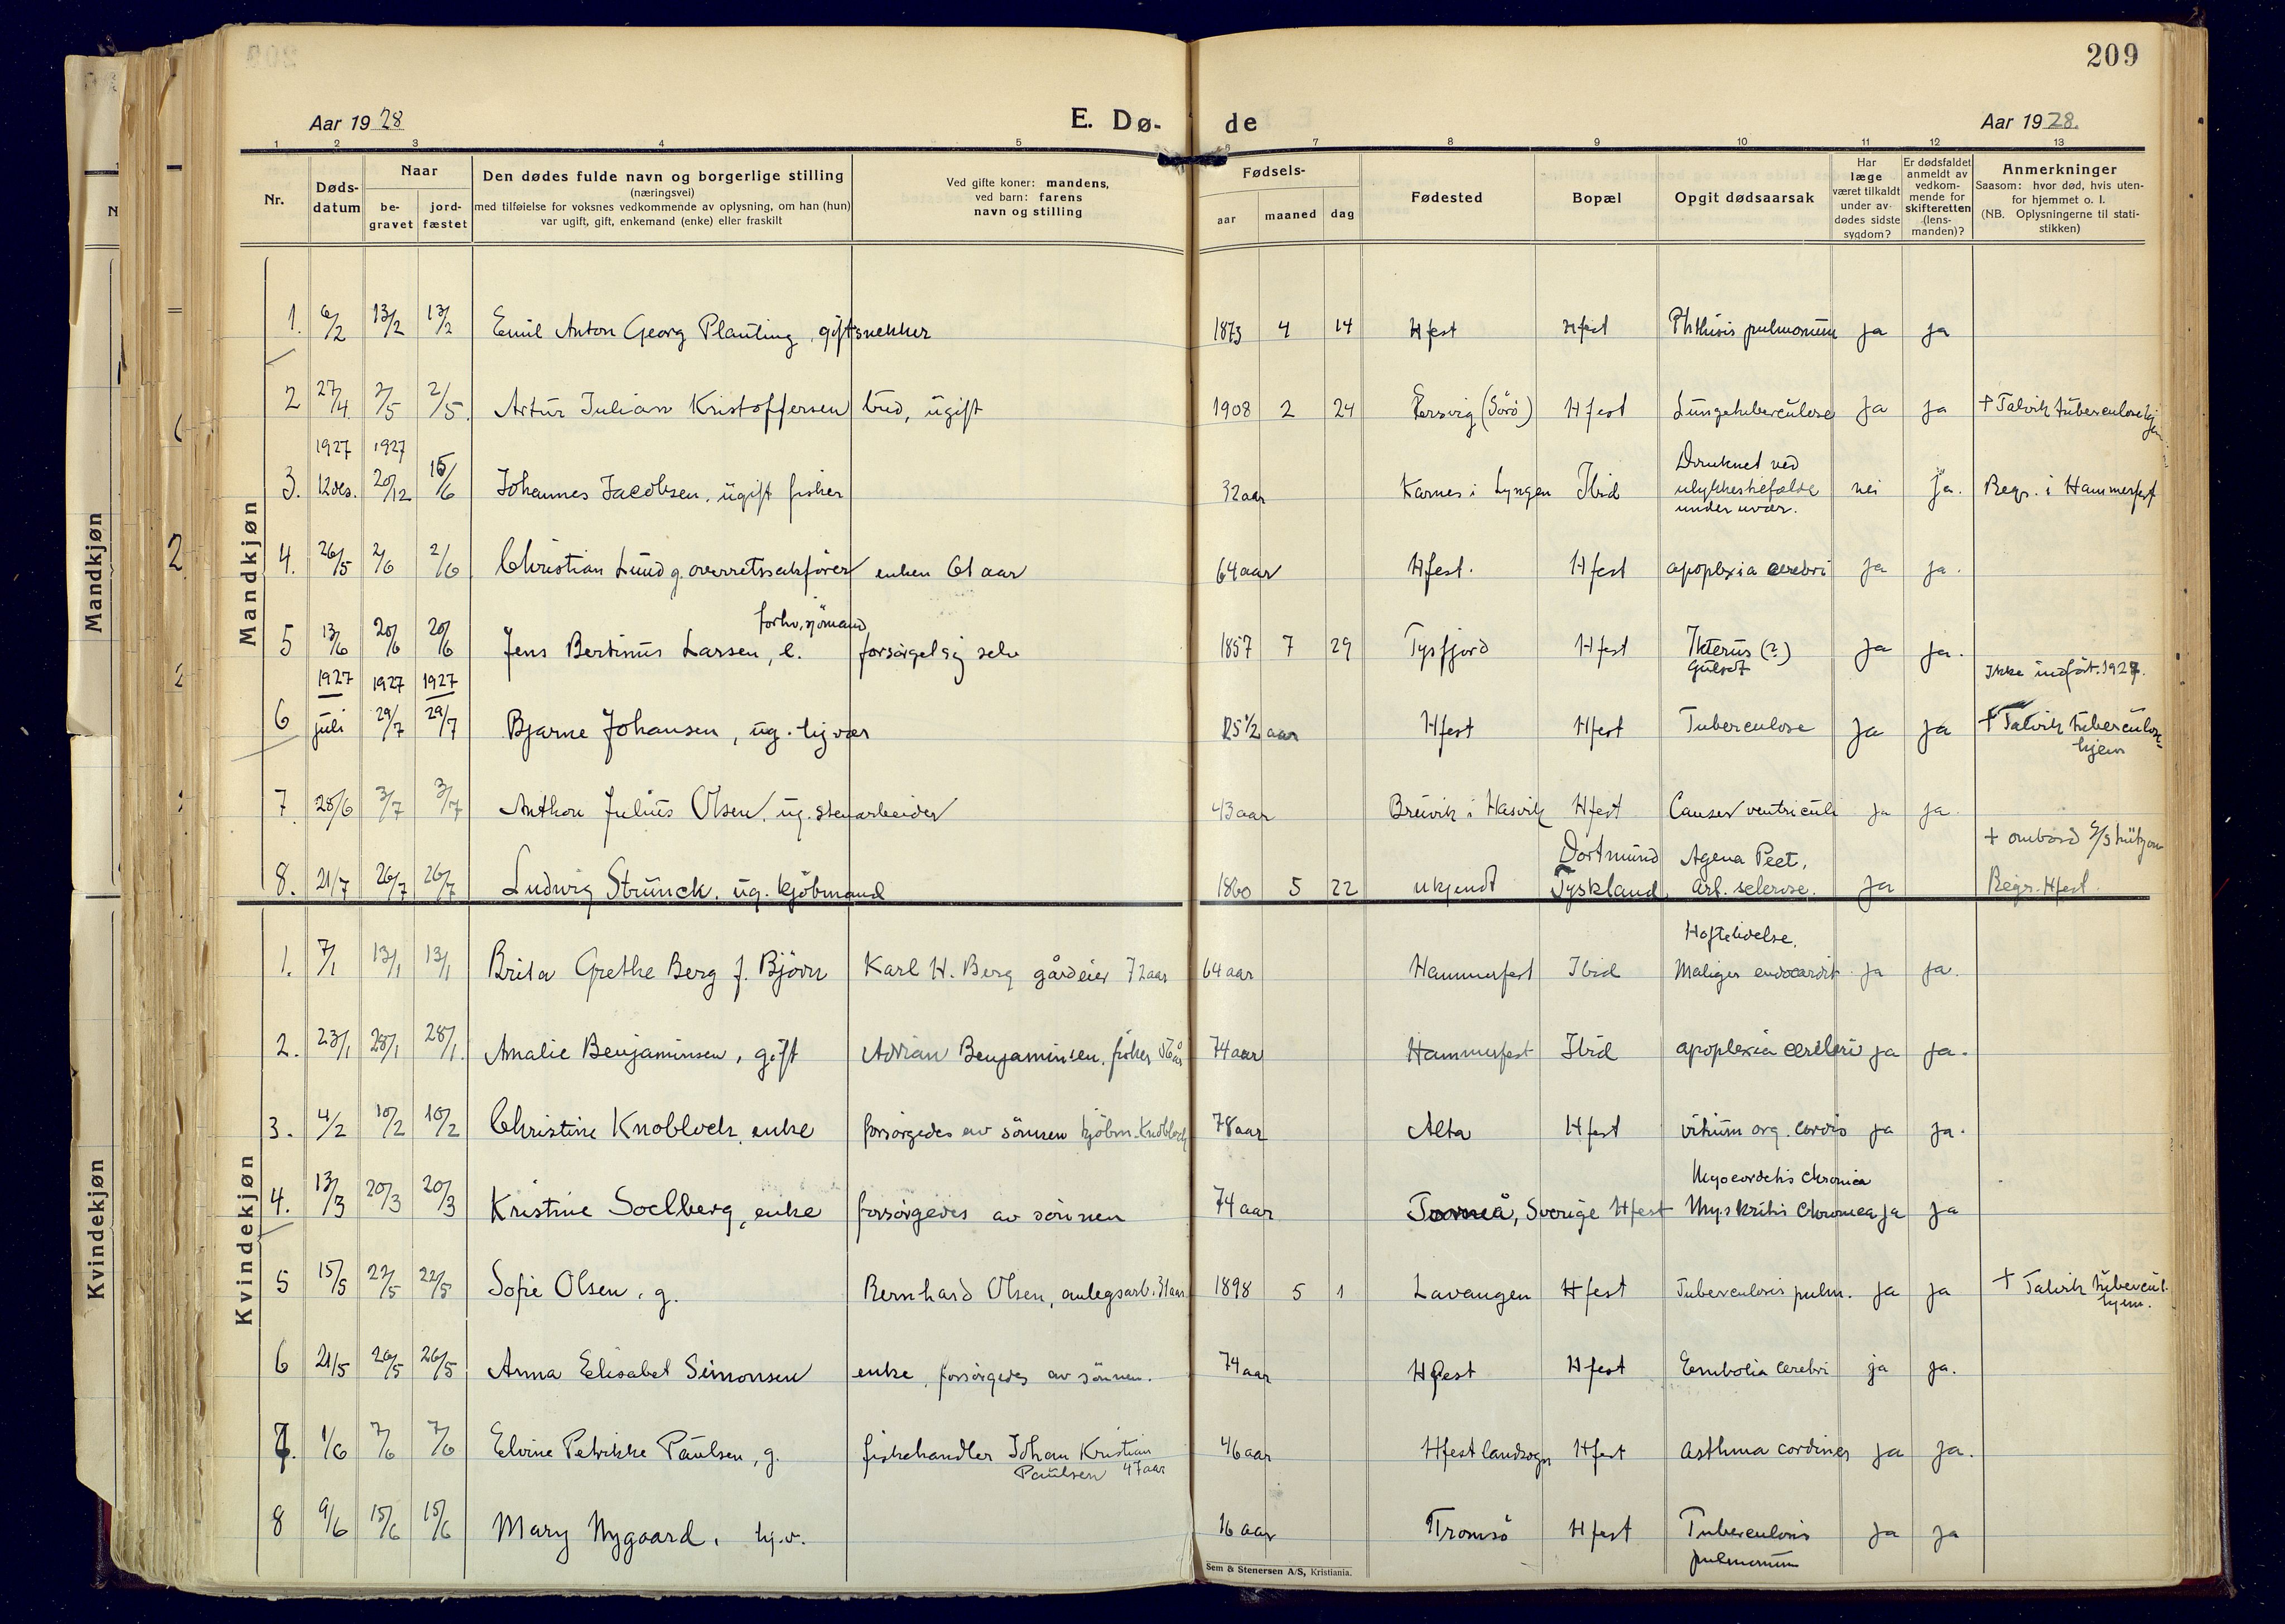 209
Aar 1928
E. Dø-
de
Aar 1928.
1 2 3 4 5 6 7 8 9 10 11 12 13
Nr.
Døds-
datum
Naar
be-
gravet
jord-
fæstet
Den dødes fulde navn og borgerlige stilling
(næringsvei)
med tilføielse for voksnes vedkommende av oplysning, om han (hun)
var ugift, gift, enkemand (enke) eller fraskilt
Ved gifte koner: mandens,
ved barn: farens
navn og stilling
Fødsels-
aar maaned dag
Fødested
Bopæl
Opgit dødsaarsak
Har
læge
været tilkaldt
under av-
dødes sidste
sygdom?
Er dødsfaldet
anmeldt av
vedkom-
mende for
skifteretten
(lens-
manden)?
Anmerkninger
Saasom: hvor død, hvis uten-
for hjemmet o. l.
(NB. Oplysningerne til stati-
stikken)
Mandkjøn
1. 6/2 13/2 13/2 Emil Anton Georg Planting, gift snekker 1873 4 14 Hfest Hfest Phthisis pulmonum ja ja
2 27/4 2/5 2/5. Artur Julian Kristoffersen bud, ugift 1908 2 24 (Sörö) Hfest Lungetuberculose ja ja † Talvik tuberculosehj
1927 1927
Druknet ved
3. 12 des. 20/12 15/6 Johannes Jacobsen, ugift fisker 32 aar Karnes i Lyngen Ibid ulykkestilfælde nei ja. Begr. i Hammerfest
under uvær.
4. 26/5 2/6 2/6 Christian Lund g. overretssakfører enken 61 aar 64 aar Hfest. Hfest apoplexia cerebri ja ja.
forhv. sjömand
5 13/6 20/6 20/6 Jens Bertinus Larsen, e. forsörget sig selv 1857 7 29 Tysfjord Hfest Ikterus (?) ja ja.
Gulsot
1927 1927 1927 Ikke indfört 1927.
6 juli 29/7 29/7 Bjarne Johansen, ug. hj vær 25 1/2 aar Hfest Hfest Tuberculose ja ja † Talvik tuberculose-
hjem
7. 28/6 3/7 3/7 Anthon Julius Olsen, ug. stenarbeider 43 aar Breivik i Hasvik Hfest Cancer ventriculi ja ja.
Dortmund Agena Pect, † ombord
8. 21/7 26/7 26/7 Ludwig Strunck, ug. kjöbmand 1860 5 22 ukjendt Tyskland Art. sclerose. ja Begr. Hfest.
Kvindekjøn
Hoftelidelse.
1. 7/1 13/1 13/1 Brita Grethe Berg f. Björn Karl H. Berg gårdeier 72 aar 64 aar Hammerfest Ibid Maligen endocardit ja ja.
2. 23/1 28/1 28/1. Amalie Benjaminsen, gift Adrian Benjaminsen, fisker 74 aar Hammerfest Ibid apoplexia cerebri ja ja.
3. 4/2 10/2 10/2 Christine Knobloch, enke forsörgedes av sönnen kjöbm. Knobloch 78 aar Alta Hfest vitium org. cordis ja ja.
Myocordetis chronica
4. 13/3 20/3 20/3 Kristine Soelberg, enke forsörgedes av sönnen 74 aar Torneå, Sverige Hfest chronica ja ja
5 15/5 22/5 22/5 Sofie Olsen, g. Bernhard Olsen, anlegsarb. 31 aar 1898 5 1 Lavangen Hfest Tuberculosis pulm. ja ja † Talvik tubercul.
hjem.
6 21/5 26/5 26/5 Anna Elisabet Simonsen enke, forsörgedes av sönnen. 74 aar Hfest Hfest Embolia cerebri ja ja.
7. 1/6 7/6 7/6 Elvine Petrikke Paulsen, g. fiskehandler Johan Kristian 46 aar Hfest landsogn Hfest Asthma ja ja.
Paulsen 47 aar
8 9/6 15/6 15/6 Mary Nygaard, hj.v. 16 aar Tromsö Hfest Tuberculosis ja ja
pulmonum
Sem & Stenersen A/S, Kristiania.
Mandkjøn
Kvindekjøn